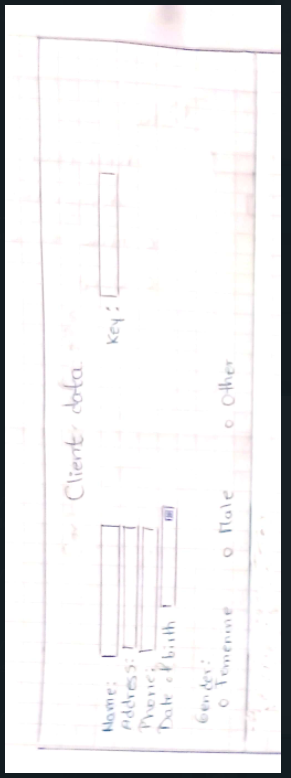 Client data
Name: Key:
Address:
Phone:
Date of birth
Gender:
Femenine Male Other